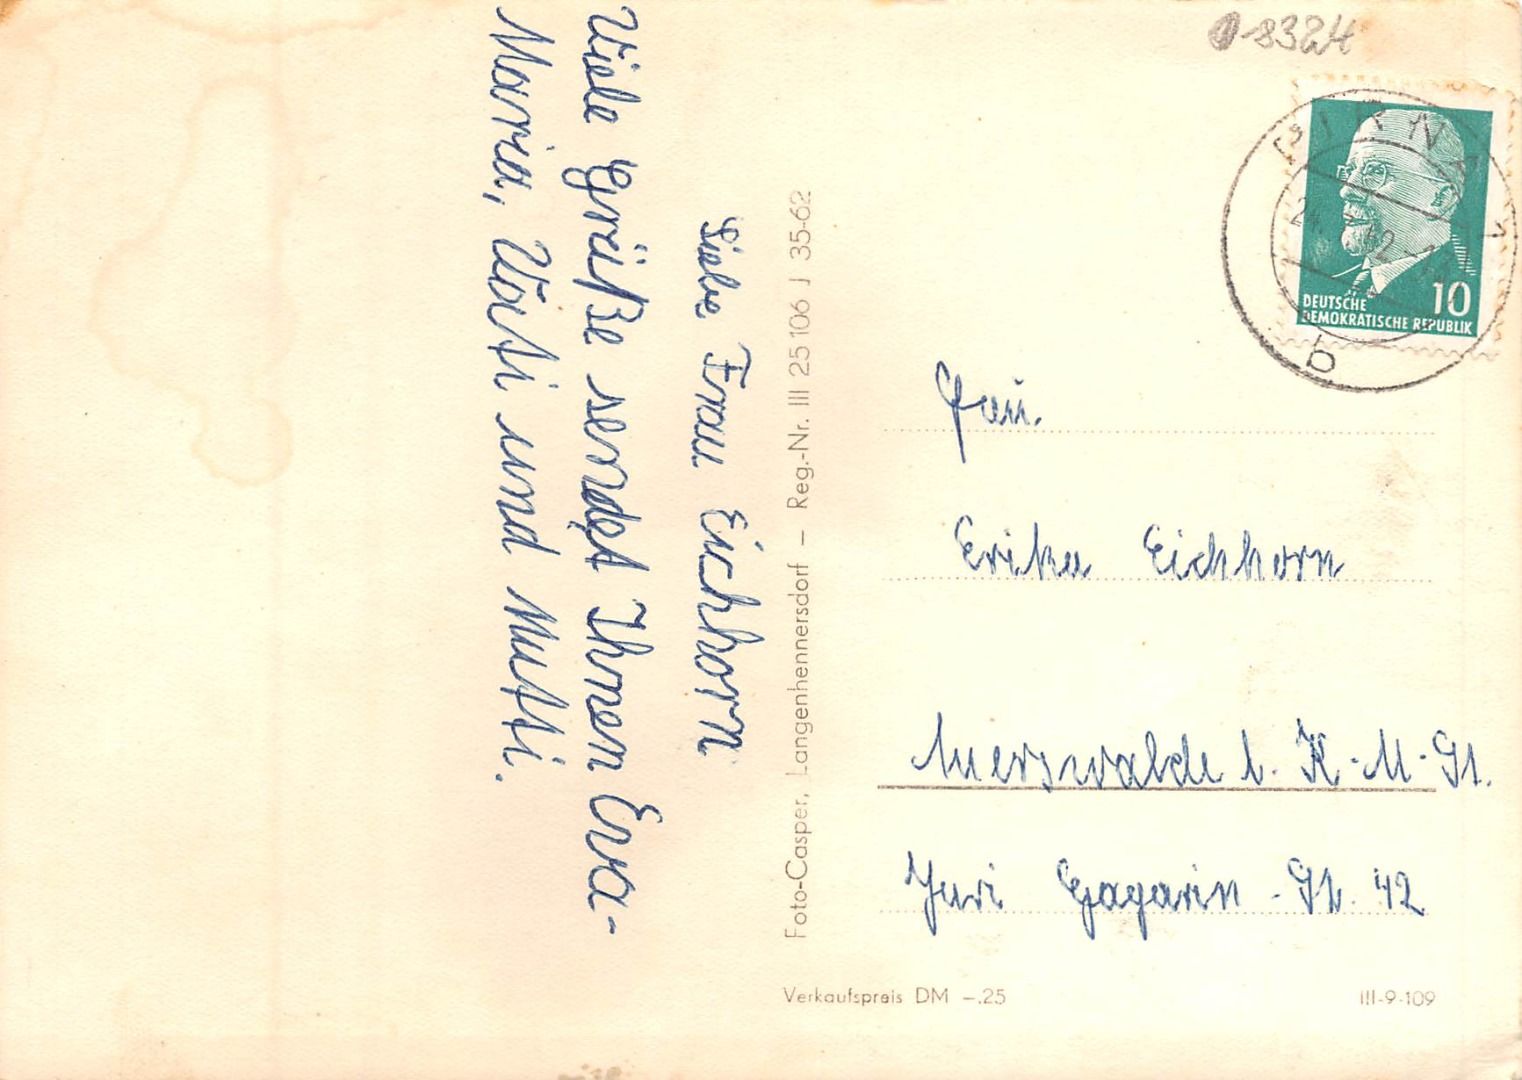 Liebe Frau Eichhorn
Viele Grüße sendet Ihnen Eva-
Maria, Vati und Mutti.
Foto-Casper, Langenhennersdorf – Reg.-Nr. III 25 106 J 35-62
8324
PIRNA 1
b
10
DEUTSCHE
DEMOKRATISCHE REPUBLIK
Frau
Erika Eichhorn
Auerswalde b. K.-M.-St.
Juri Gagarin-Str. 42
Verkaufspreis DM –.25
III-9-109